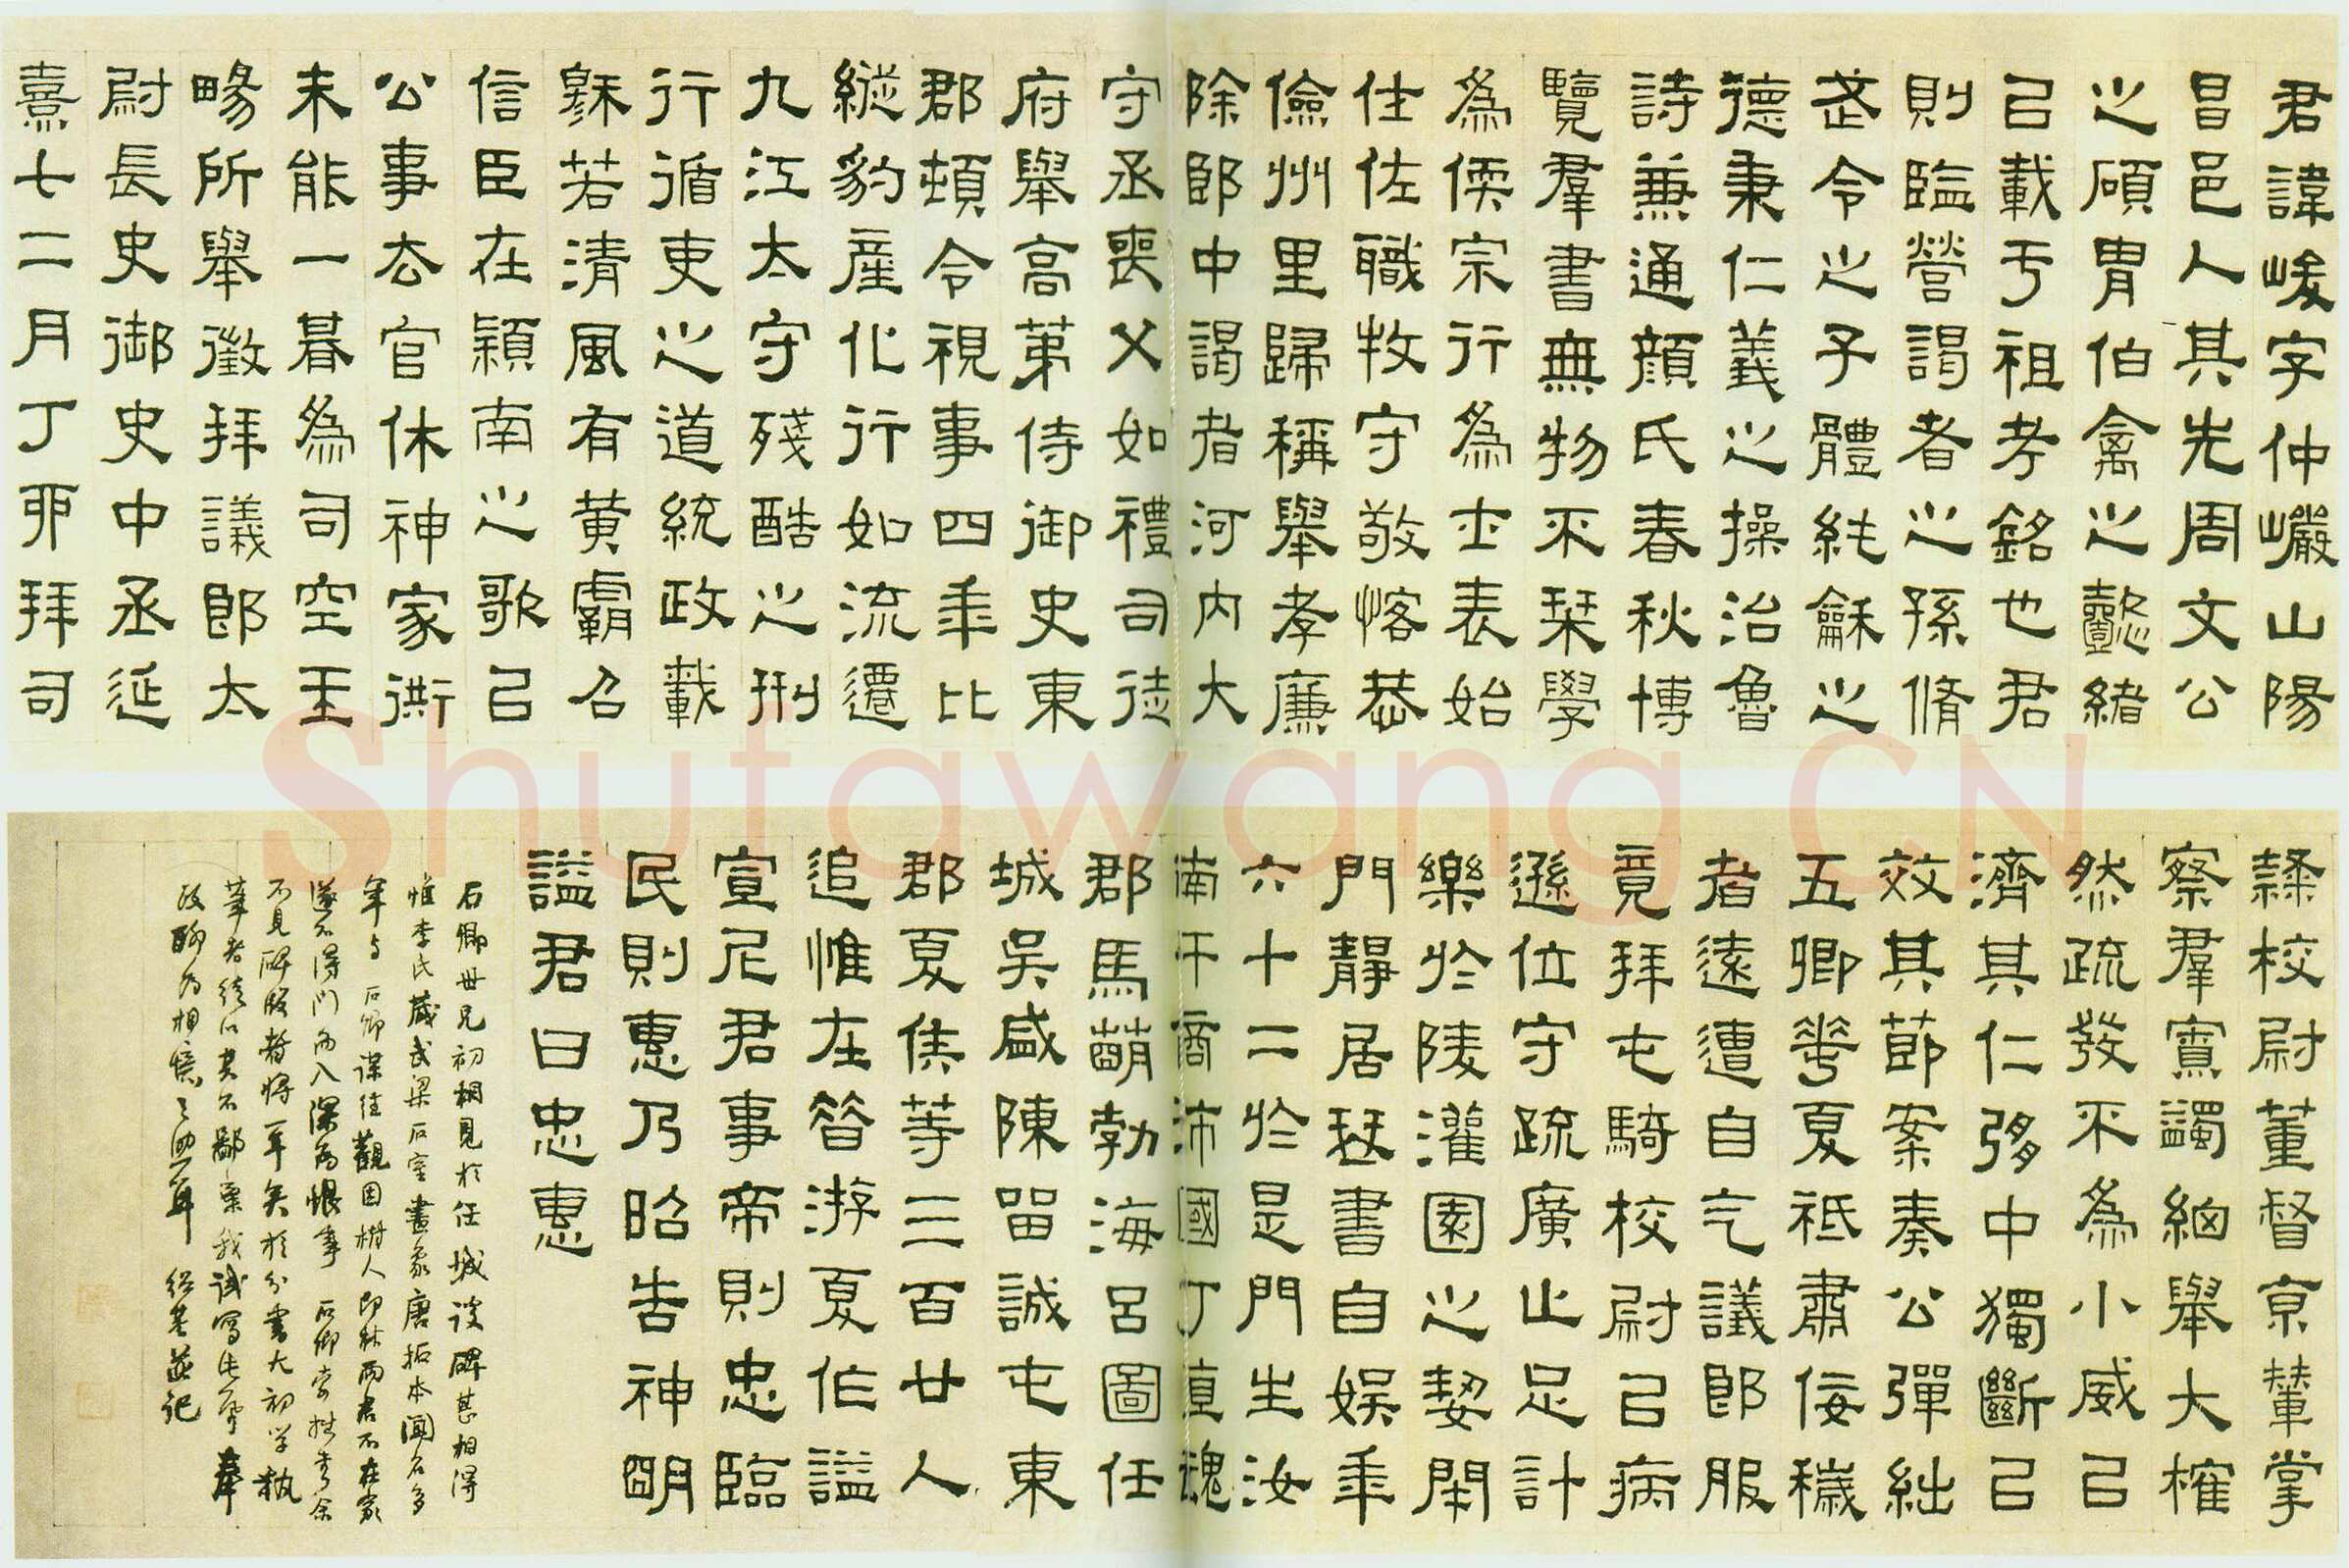 君諱峻字仲巖山陽
昌邑人其先周文公
之碩胄伯禽之懿緒
㠯載于祖考銘也君
則臨營謁者之孫脩
武令之子體純龢之
德秉仁義之操治魯
詩兼通顏氏春秋博
覽羣書無物不栞學
為偄宗行為士表始
仕佐職牧守敬恪恭
儉州里歸稱舉孝廉
除郎中謁者河內大
守丞喪父如禮司徒
府舉高第侍御史東
郡頓令視事四年比
縱豹產化行如流遷
九江太守殘酷之刑
行循吏之道統政載
穌若清風有黃霸召
信臣在潁南之歌㠯
公事去官休神家衖
未能一朞為司空王
暢所舉徵拜議郎太
尉長史御史中丞延
熹七二月丁卯拜司
隸校尉董督京輦掌
察羣寮蠲細舉大榷
然疏發不為小威㠯
濟其仁弸中獨斷㠯
效其節案奏公彈絀
五卿華夏祗肅佞穢
者遠遭自乞議郎服
竟拜屯騎校尉㠯病
遜位守疏廣止足計
樂於陵灌園之契閑
門靜居琴書自娛年
六十二於是門生汝
南干商沛國丁直魏
郡馬萌勃海呂圖任
城吳盛陳留誠屯東
郡夏侯等三百廿人
追惟在昔游夏作謚
宣尼君事帝則忠臨
民則惠乃昭告神明
謚君曰忠惠
石卿世兄初相見於任城談碑甚相得
惟李氏藏武梁石室畫象唐拓本聞名多
年与石卿謀往觀因樹人即林兩君不在家
遂不得門而入深為恨事石卿索拙書余
不見碑版者將一年矣於分書大初学執
筆者然以其不鄙棄我試寫生紙奉
政聊為相憶之耳 紹基並記
Shufawang.CN